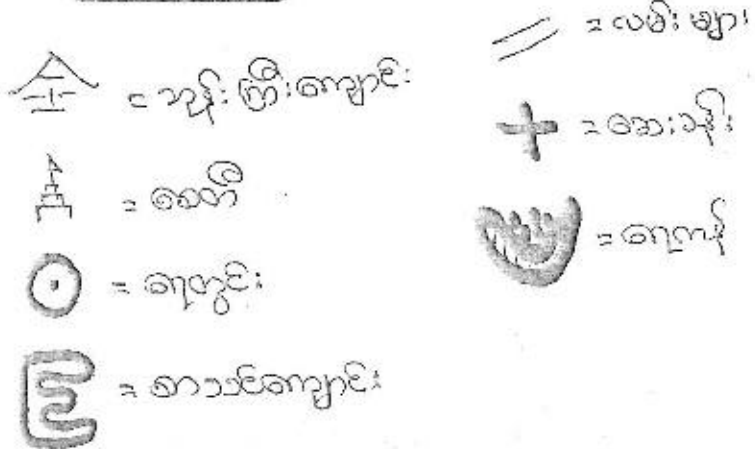 = ဘုန်းကြီးကျောင်း
= စေတီ
= ရေတွင်း
= စာသင်ကျောင်း
= လမ်းများ
= ဆေးခန်း
= ရေကန်